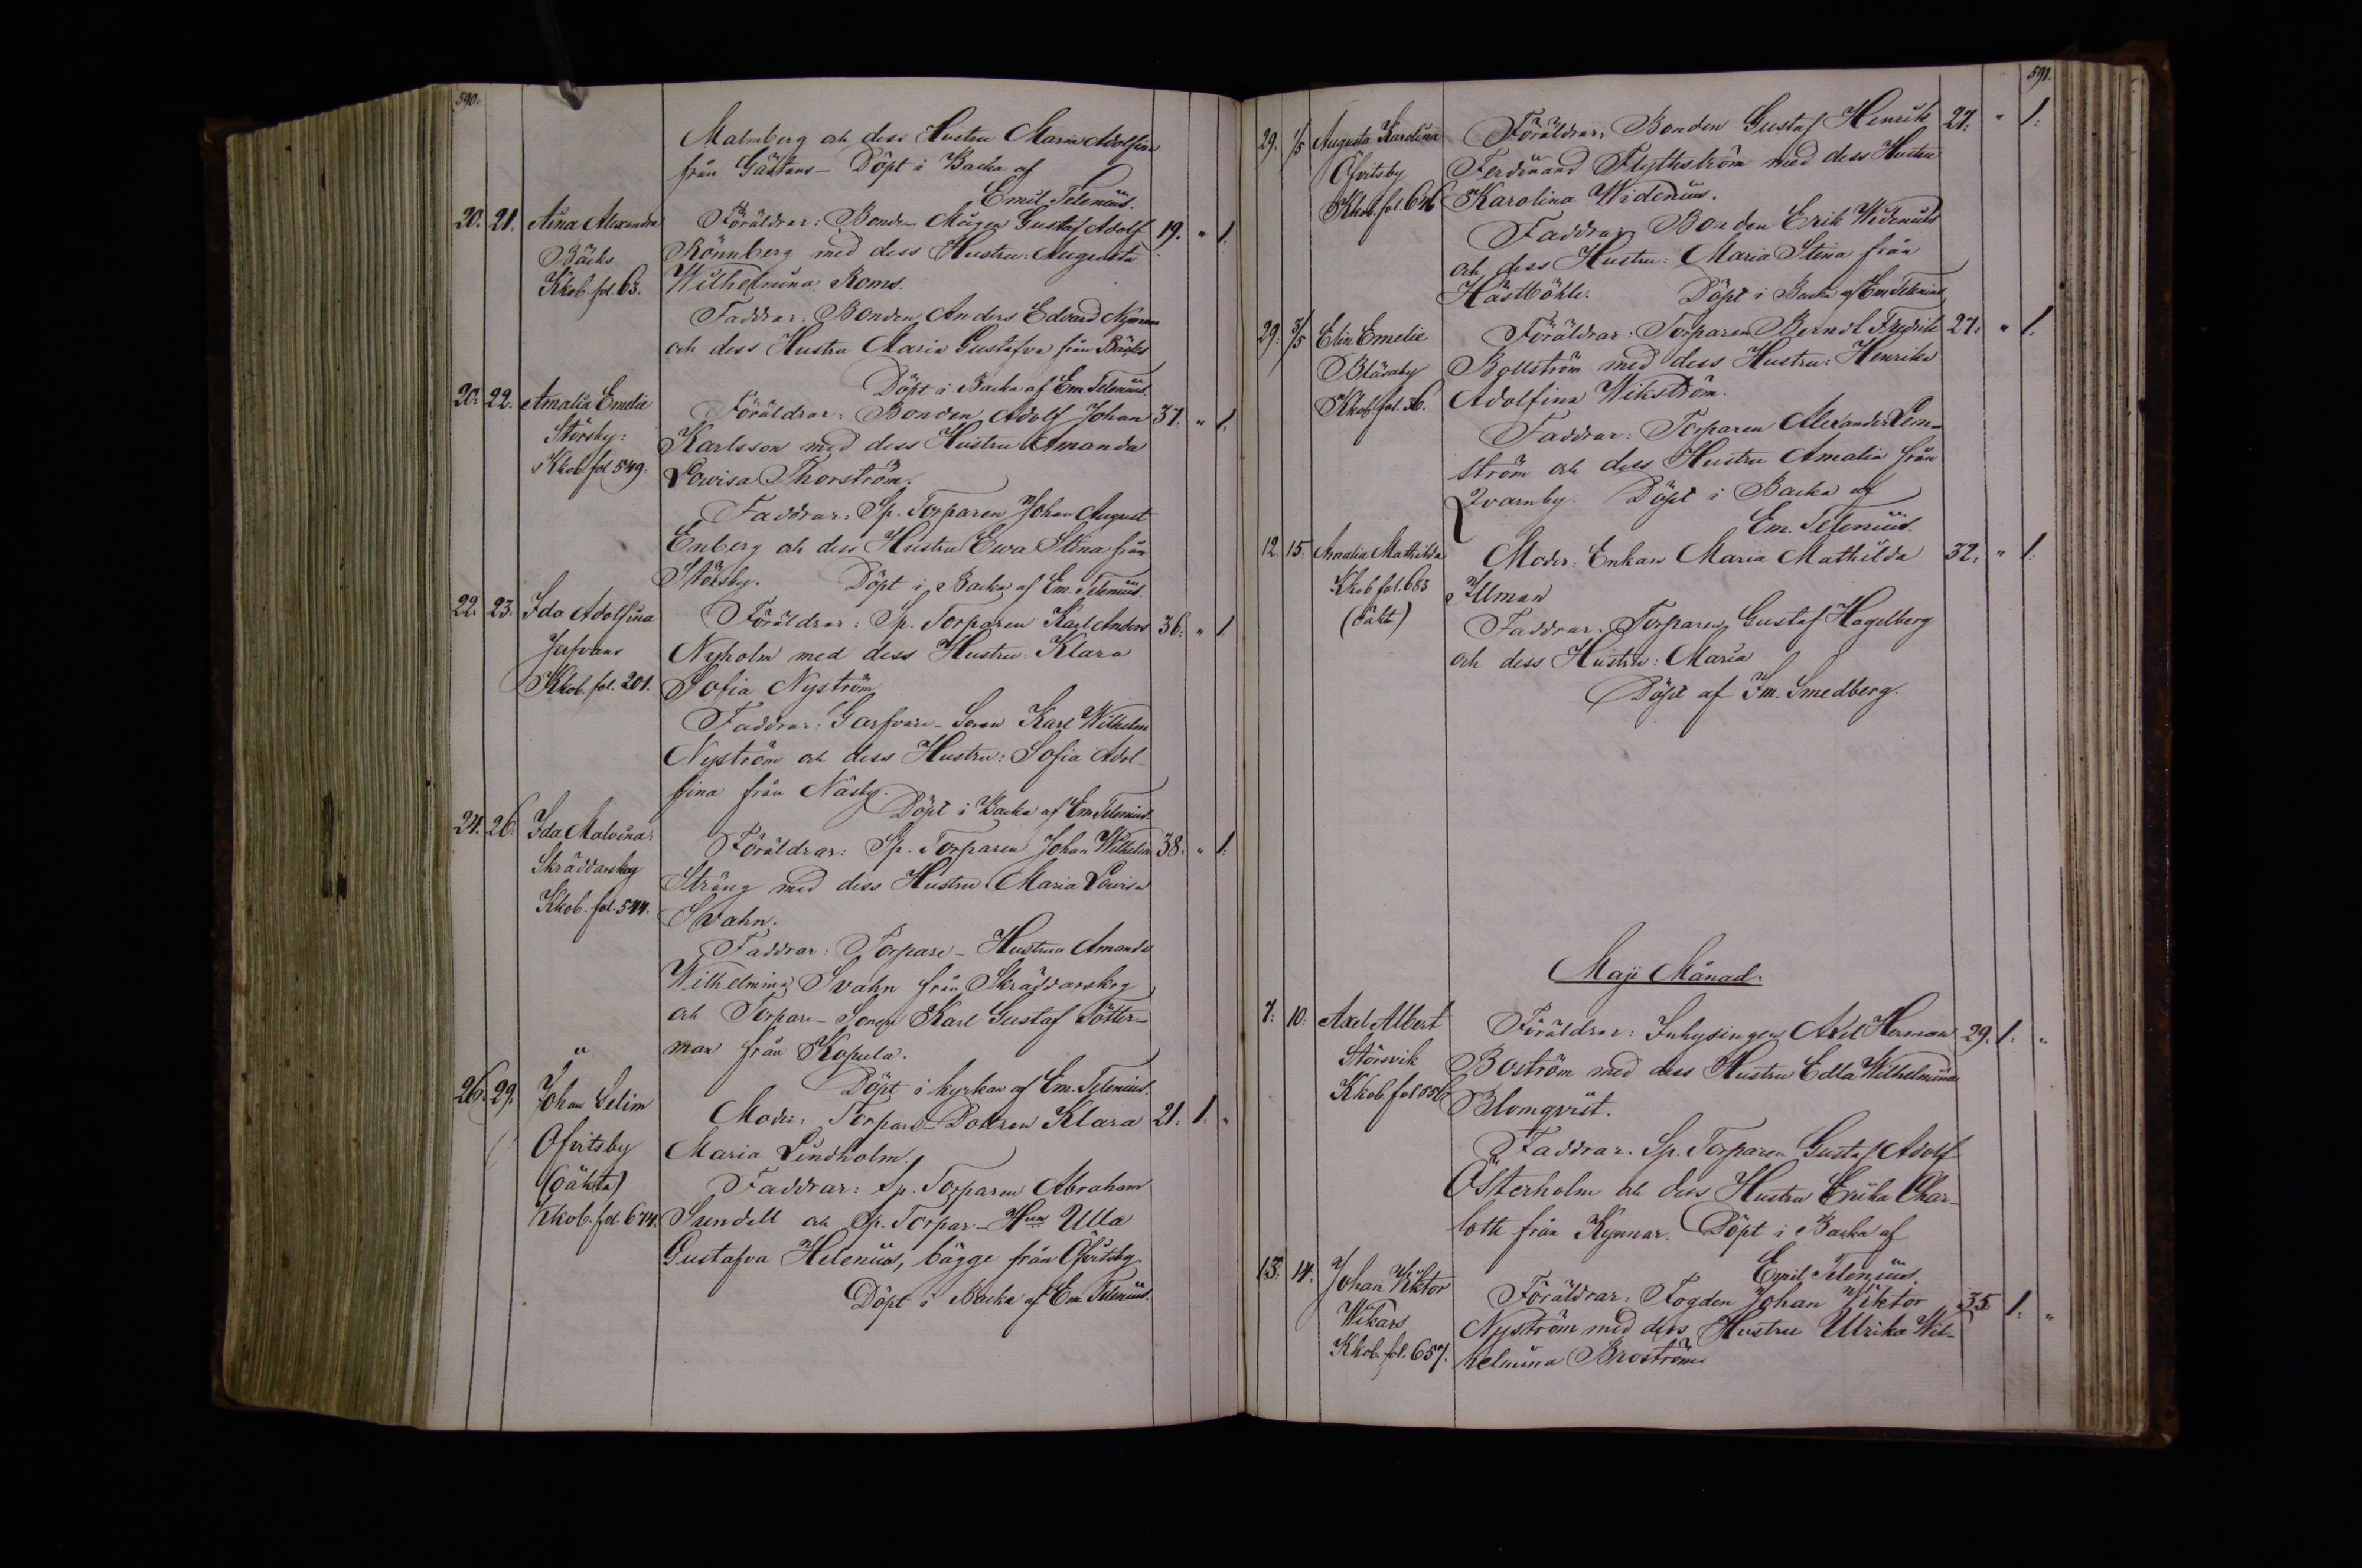 590.
Malmberg och dess Hustru Maria Adolfina
från Gästans - Döpt i Backa af
Emil Telenius.
20. 21. Aina Alexandra Föräldrar: Bonde-Mågen Gustaf Adolf 19. " 1.
Bäcks Rönnberg med dess Hustru: Augusta
Kkob. fol. 63. Wilhelmina Roms.
Faddrar: Bonden Anders Edvard Nyman
och dess Hustru Maria Gustafva från Bäcks
Döpt i Backa af Em. Telenius.
20. 22. Amalia Emelia Föräldrar: Bonden Adolf Johan 37. " 1.
Störsby: Karlsson med dess Hustru Amanda
Kkob. fol 549. Lovisa Thorström.
Faddrar: Sp. Torparen Johan August
Enberg och dess Hustru Ewa Stina från
Störsby. Döpt i Backa af Em. Telenius.
22. 23. Ida Adolfina Föräldrar: Sp. Torparen Karl Anders 36. " 1.
Nyholm med dess Hustru: Klara
Kkob. fol. 201. Sofia Nyström
Faddrar: Garfvare-Sonen Karl Wilhelm
Nyström och dess Hustru: Sofia Adol-
fina från Näsby. Döpt i Backa af Em. Telenius.
24. 26. Ida Malvina: Föräldrar: Sp. Torparen Johan Wilhelm 38. " 1.
Skräddarskog Sträng med dess Hustru Maria Lovisa
Kkob. fol. 544. Svahn.
Faddrar: Torpare-Hustrun Amanda
Wilhelmina Svahn från Skräddarskog
och Torpare-Sonen Karl Gustaf Tötter-
man från Kopula.
Döpt i kyrkan af Em. Telenius.
26. 29. Johan Selim Moder: Torpare-Dottren Klara 21. 1. "
Öfvitsby Maria Lindholm.
(oäkta) Faddrar: Sp. Torparen Abraham
Kkob. fol. 674. Sundell och Sp. Torpar-Hun Ulla
Gustafva Helenius, bägge från Öfvitsby
Döpt i Backa af Em. Telenius.
591.
29. 1/5 Augusta Karolina Föräldrar: Bonden Gustaf Henrik 27. " 1.
Öfvitsby Ferdinand Flythström med dess Hustru
Kkob. fol. 646 Karolina Widenius.
Faddrar: Bonden Erik Widenius
och dess Hustru: Maria Stina från
Hästböhle. Döpt i Backa af Em Telenius
29. 3/5 Elin Emelie Föräldrar: Torparen Berndt Fredrik 27. " 1.
Blåsaby Bollström med dess Hustru: Henrika
Kkob. fol. 36. Adolfina Wikström.
Faddrar: Torparen Alexander Lem-
ström och dess Hustru Amalia från
Qvarnby. Döpt i Backa af
Em. Telenius.
12. 15. Amalia Mathilda Moder: Enkan Maria Mathilda 32. " 1.
Kkob fol. 683 Illman
(oäkt) Faddrar: Torparen Gustaf Hagelberg
och dess Hustru: Maria
Döpt af Fm. Smedberg.
Maji Månad.
7. 10. Axel Albert Föräldrar: Inhysingen Axel Herman 29. 1. "
Störsvik Boström med dess Hustru Edla Wilhelmina
Kkob fol 556 Blomqvist.
Faddrar: Sp. Torparen Gustaf Adolf
Österholm och dess Hustru Erika Char-
lotte från Kynnar. Döpt i Backa af
Emil Telenius.
13. 14. Johan Viktor Föräldrar: Fogden Johan Viktor 35. 1. "
Wikars Nyström med dess Hustru Ulrika Wil-
Kkob. fol. 657. helmina Broström